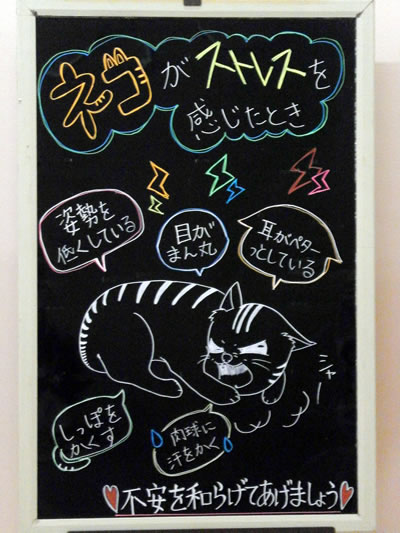 ネコがストレスを
感じたとき
姿勢を
低くしている
目が
まん丸
耳がペター
っとしている
シャー
しっぽを
かくす
肉球に
汗をかく
不安を和らげてあげましょう